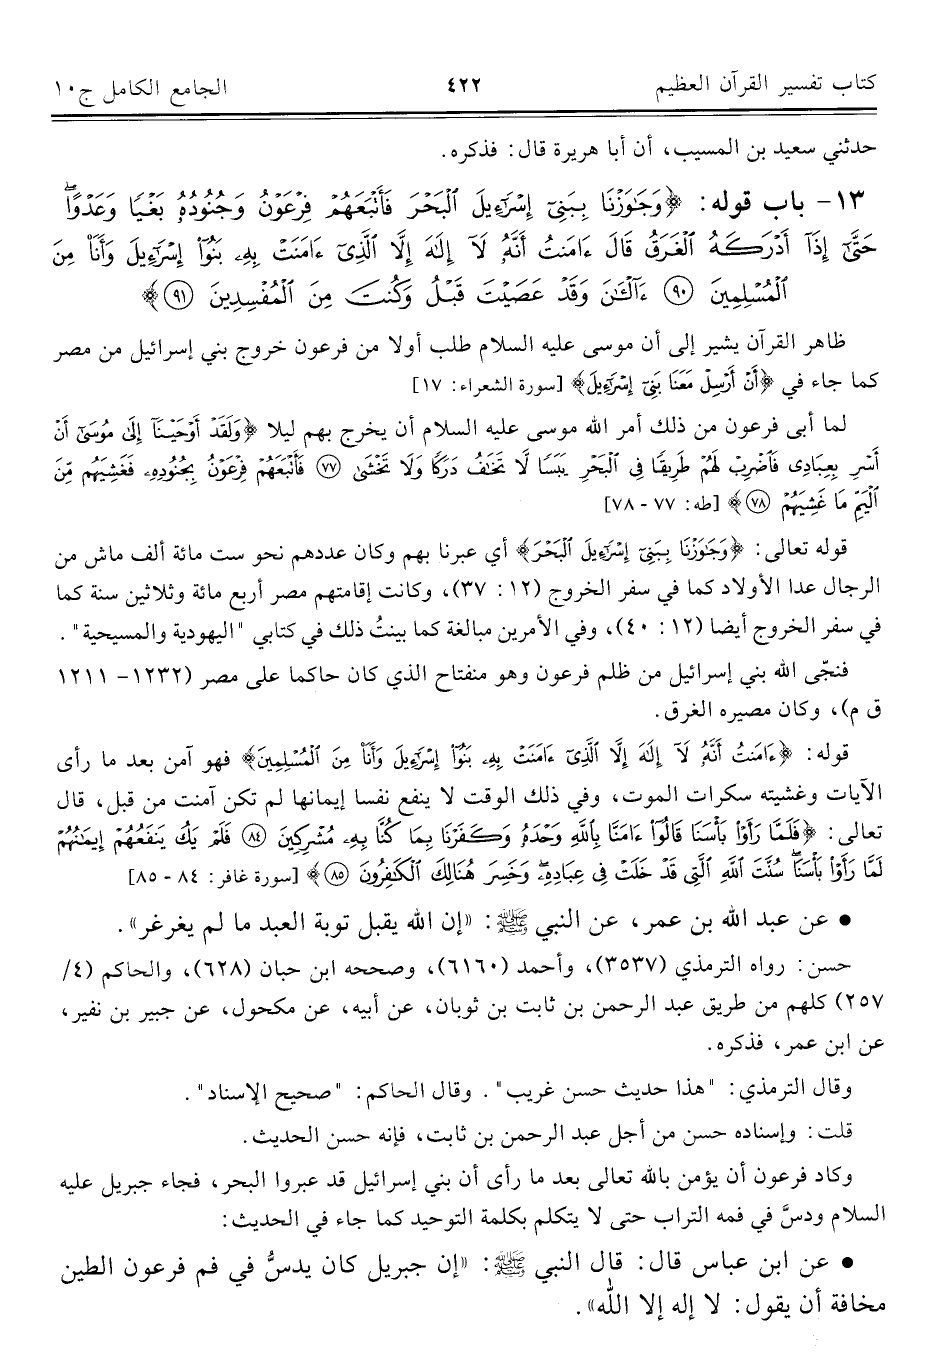 كتاب تفسير القرآن العظيم ٤٢٢ الجامع الكامل ج١٠
حدثني سعيد بن المسيب، أن أبا هريرة قال: فذكره.
١٣- باب قوله: ﴿وَجَٰوَزۡنَا بِبَنِيٓ إِسۡرَٰٓءِيلَ ٱلۡبَحۡرَ فَأَتۡبَعَهُمۡ فِرۡعَوۡنُ وَجُنُودُهُۥ بَغۡيٗا وَعَدۡوًاۖ
حَتَّىٰٓ إِذَآ أَدۡرَكَهُ ٱلۡغَرَقُ قَالَ ءَامَنتُ أَنَّهُۥ لَآ إِلَٰهَ إِلَّا ٱلَّذِيٓ ءَامَنَتۡ بِهِۦ بَنُوٓاْ إِسۡرَٰٓءِيلَ وَأَنَا۠ مِنَ
ٱلۡمُسۡلِمِينَ ٩٠ ءَآلۡـَٰٔنَ وَقَدۡ عَصَيۡتَ قَبۡلُ وَكُنتَ مِنَ ٱلۡمُفۡسِدِينَ ٩١﴾
ظاهر القرآن يشير إلى أن موسى عليه السلام طلب أولا من فرعون خروج بني إسرائيل من مصر
كما جاء في ﴿أَنۡ أَرۡسِلۡ مَعَنَا بَنِيٓ إِسۡرَٰٓءِيلَ﴾ [سورة الشعراء: ١٧]
لما أبى فرعون من ذلك أمر الله موسى عليه السلام أن يخرج بهم ليلا ﴿وَلَقَدۡ أَوۡحَيۡنَآ إِلَىٰ مُوسَىٰٓ أَنۡ
أَسۡرِ بِعِبَادِي فَٱضۡرِبۡ لَهُمۡ طَرِيقٗا فِي ٱلۡبَحۡرِ يَبَسٗا لَّا تَخَٰفُ دَرَكٗا وَلَا تَخۡشَىٰ ٧٧ فَأَتۡبَعَهُمۡ فِرۡعَوۡنُ بِجُنُودِهِۦ فَغَشِيَهُم مِّنَ
ٱلۡيَمِّ مَا غَشِيَهُمۡ ٧٨﴾ [طه: ٧٧ - ٧٨]
قوله تعالى: ﴿وَجَٰوَزۡنَا بِبَنِيٓ إِسۡرَٰٓءِيلَ ٱلۡبَحۡرَ﴾ أي عبرنا بهم وكان عددهم نحو ست مائة ألف ماش من
الرجال عدا الأولاد كما في سفر الخروج (١٢ : ٣٧)، وكانت إقامتهم مصر أربع مائة وثلاثين سنة كما
في سفر الخروج أيضا (١٢ : ٤٠)، وفي الأمرين مبالغة كما بينتُ ذلك في كتابي "اليهودية والمسيحية".
فنجّى الله بني إسرائيل من ظلم فرعون وهو منفتاح الذي كان حاكما على مصر (١٢٣٢- ١٢١١
ق م)، وكان مصيره الغرق.
قوله: ﴿ءَامَنتُ أَنَّهُۥ لَآ إِلَٰهَ إِلَّا ٱلَّذِيٓ ءَامَنَتۡ بِهِۦ بَنُوٓاْ إِسۡرَٰٓءِيلَ وَأَنَا۠ مِنَ ٱلۡمُسۡلِمِينَ﴾ فهو آمن بعد ما رأى
الآيات وغشيته سكرات الموت، وفي ذلك الوقت لا ينفع نفسا إيمانها لم تكن آمنت من قبل، قال
تعالى: ﴿فَلَمَّا رَأَوۡاْ بَأۡسَنَا قَالُوٓاْ ءَامَنَّا بِٱللَّهِ وَحۡدَهُۥ وَكَفَرۡنَا بِمَا كُنَّا بِهِۦ مُشۡرِكِينَ ٨٤ فَلَمۡ يَكُ يَنفَعُهُمۡ إِيمَٰنُهُمۡ
لَمَّا رَأَوۡاْ بَأۡسَنَاۖ سُنَّتَ ٱللَّهِ ٱلَّتِي قَدۡ خَلَتۡ فِي عِبَادِهِۦۖ وَخَسِرَ هُنَالِكَ ٱلۡكَٰفِرُونَ ٨٥﴾ [سورة غافر: ٨٤ - ٨٥]
• عن عبد الله بن عمر، عن النبي ﷺ: «إن الله يقبل توبة العبد ما لم يغرغر».
حسن: رواه الترمذي (٣٥٣٧)، وأحمد (٦١٦٠)، وصححه ابن حبان (٦٢٨)، والحاكم (٤/
٢٥٧) كلهم من طريق عبد الرحمن بن ثابت بن ثوبان، عن أبيه، عن مكحول، عن جبير بن نفير،
عن ابن عمر، فذكره.
وقال الترمذي: "هذا حديث حسن غريب". وقال الحاكم: "صحيح الإسناد".
قلت: وإسناده حسن من أجل عبد الرحمن بن ثابت، فإنه حسن الحديث.
وكاد فرعون أن يؤمن بالله تعالى بعد ما رأى أن بني إسرائيل قد عبروا البحر، فجاء جبريل عليه
السلام ودسَّ في فمه التراب حتى لا يتكلم بكلمة التوحيد كما جاء في الحديث:
• عن ابن عباس قال: قال النبي ﷺ: «إن جبريل كان يدسُّ في فم فرعون الطين
مخافة أن يقول: لا إله إلا الله».